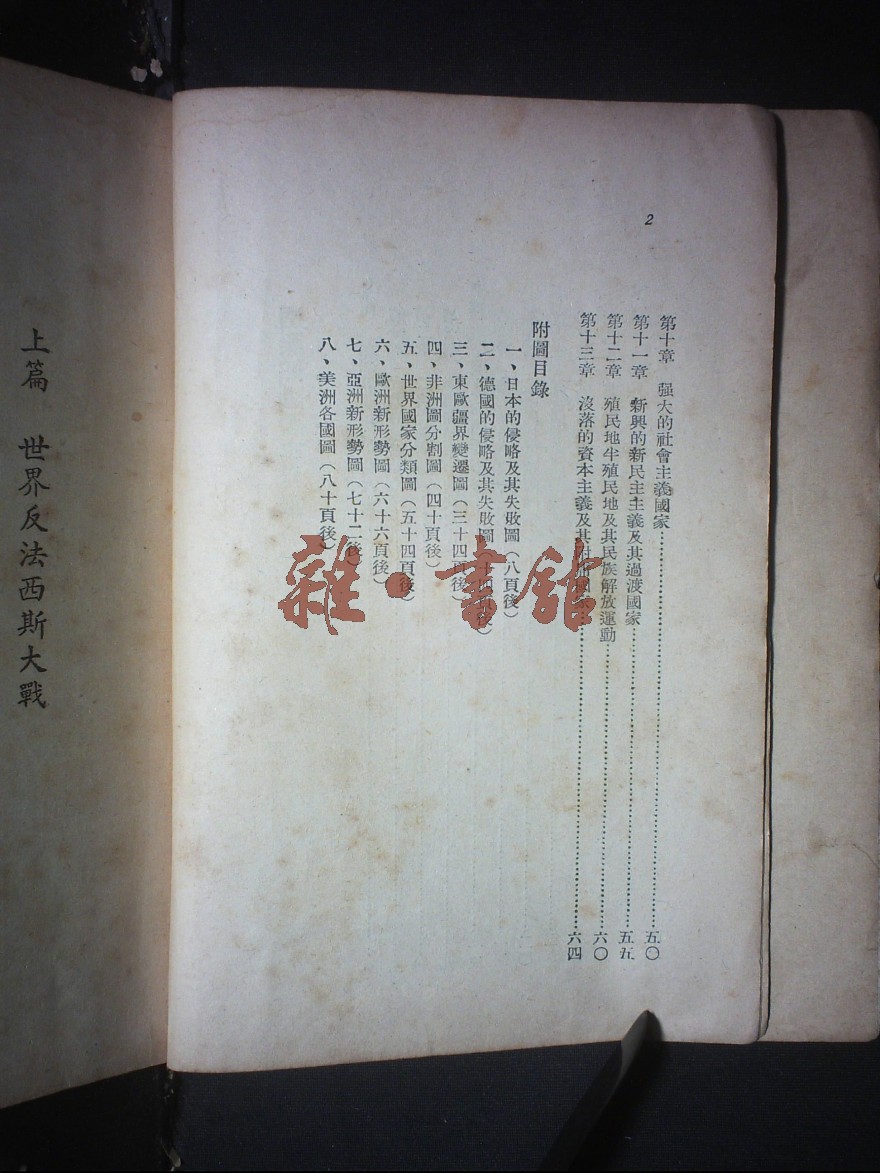 2
第十章 强大的社會主義國家……五〇
第十一章 新興的新民主主義及其過渡國家……五五
第十二章 殖民地半殖民地及其民族解放運動……六〇
第十三章 沒落的資本主義及其附庸國家……六四
附圖目錄
一、日本的侵略及其失敗圖（八頁後）
二、德國的侵略及其失敗圖（十四頁後）
三、東歐疆界變遷圖（三十四頁後）
四、非洲圖分割圖（四十頁後）
五、世界國家分類圖（五十四頁後）
六、歐洲新形勢圖（六十六頁後）
七、亞洲新形勢圖（七十二後）
八、美洲各國圖（八十頁後）
上篇 世界反法西斯大戰
雜·書館